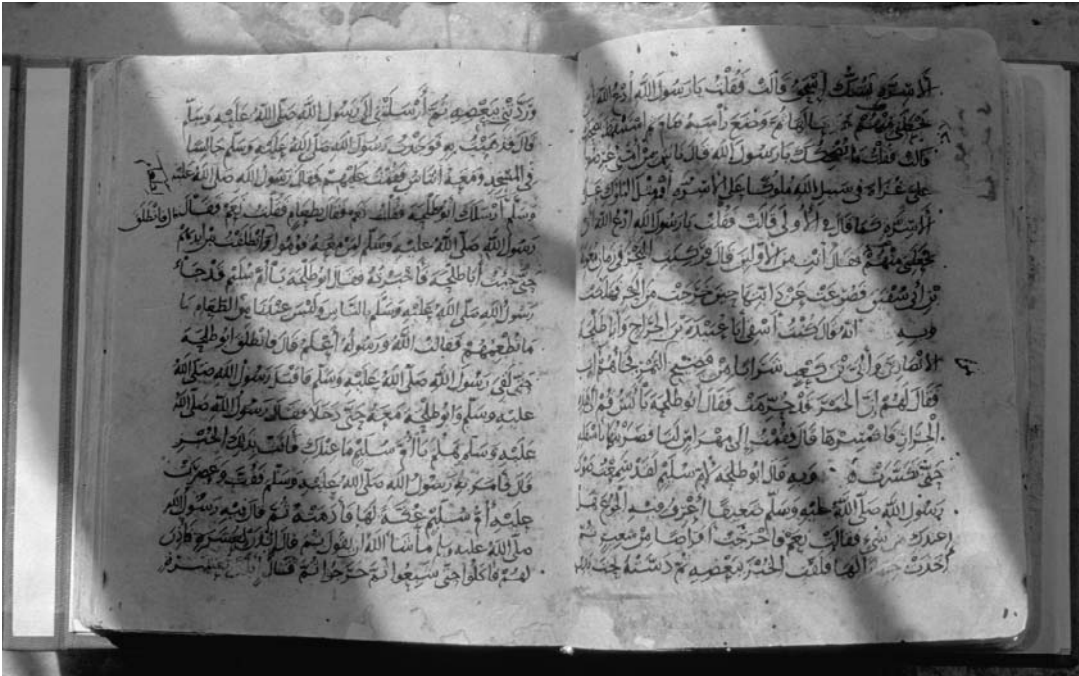 الاسرة يشك ايهما قالت فقلت يا رسول الله ادع الله ان
يجعلني منهم ثم وضع رأسه فنام ثم استيقظ يضحك
قالت فقلت ما يضحكك يا رسول الله قال ناس من امتي عرضوا
علي غزاة في سبيل الله ملوكا على الاسرة او مثل الملوك على
الاسرة كما قال في الاولى قالت فقلت يا رسول الله ادع الله ان
يجعلني منهم فقال انت من الاولين قال فركبت البحر في زمان معوية
بن ابي سفين فصرعت عن دابتها حين خرجت من البحر فهلكت
وبه انه قال كنت اسقي ابا عبيدة بن الجراح وابا طلحة
الانصاري وابي بن كعب شرابا من فضيخ التمر فجاهم ات
فقال لهم ان الخمر قد حرمت فقال ابو طلحة يا أنس قم الى هذه
الجرار فاكسرها قال فقمت إلى مهراس لنا فضربتها باسفله
حتى تكسرت وبه قال ابو طلحة لام سليم لقد سمعت صوت
رسول الله صلى الله عليه وسلم ضعيفا أعرف فيه الجوع فهل
عندك من شيء فقالت نعم فأخرجت أقراصا من شعير ثم
أخذت خمارا لها فلفت الخبز ببعضه ثم دسته تحت
وردتني ببعضه ثم أرسلتني إلى رسول الله صلى الله عليه وسلم
قال فذهبت به فوجدت رسول الله صلى الله عليه وسلم جالسا
في المسجد ومعه الناس فقمت عليهم فقال رسول الله صلى الله عليه
وسلم أرسلك ابو طلحة فقلت نعم فقال بطعام فقلت نعم فقال
رسول الله صلى الله عليه وسلم لمن معه قوموا فانطلقت بين ايديهم
حتى جئت أبا طلحة فأخبرته فقال ابو طلحة يا أم سليم قد جاء
رسول الله صلى الله عليه وسلم بالناس وليس عندنا من الطعام
ما نطعمهم فقالت الله ورسوله أعلم قال فانطلق ابو طلحة
حتى لقي رسول الله صلى الله عليه وسلم فاقبل رسول الله صلى الله
عليه وسلم وابو طلحة معه حتى دخلا فقال رسول الله صلى الله
عليه وسلم هلم يا أم سليم ما عندك فأتت بذلك الخبز
قال فامر به رسول الله صلى الله عليه وسلم ففت وعصرت
عليه أم سليم عكة لها فآدمته ثم قال فيه رسول الله
صلى الله عليه وسلم ما شا الله ان يقول ثم قال ائذن لعشرة فاذن
لهم فأكلوا حتى شبعوا ثم خرجوا ثم قال
فانطلق